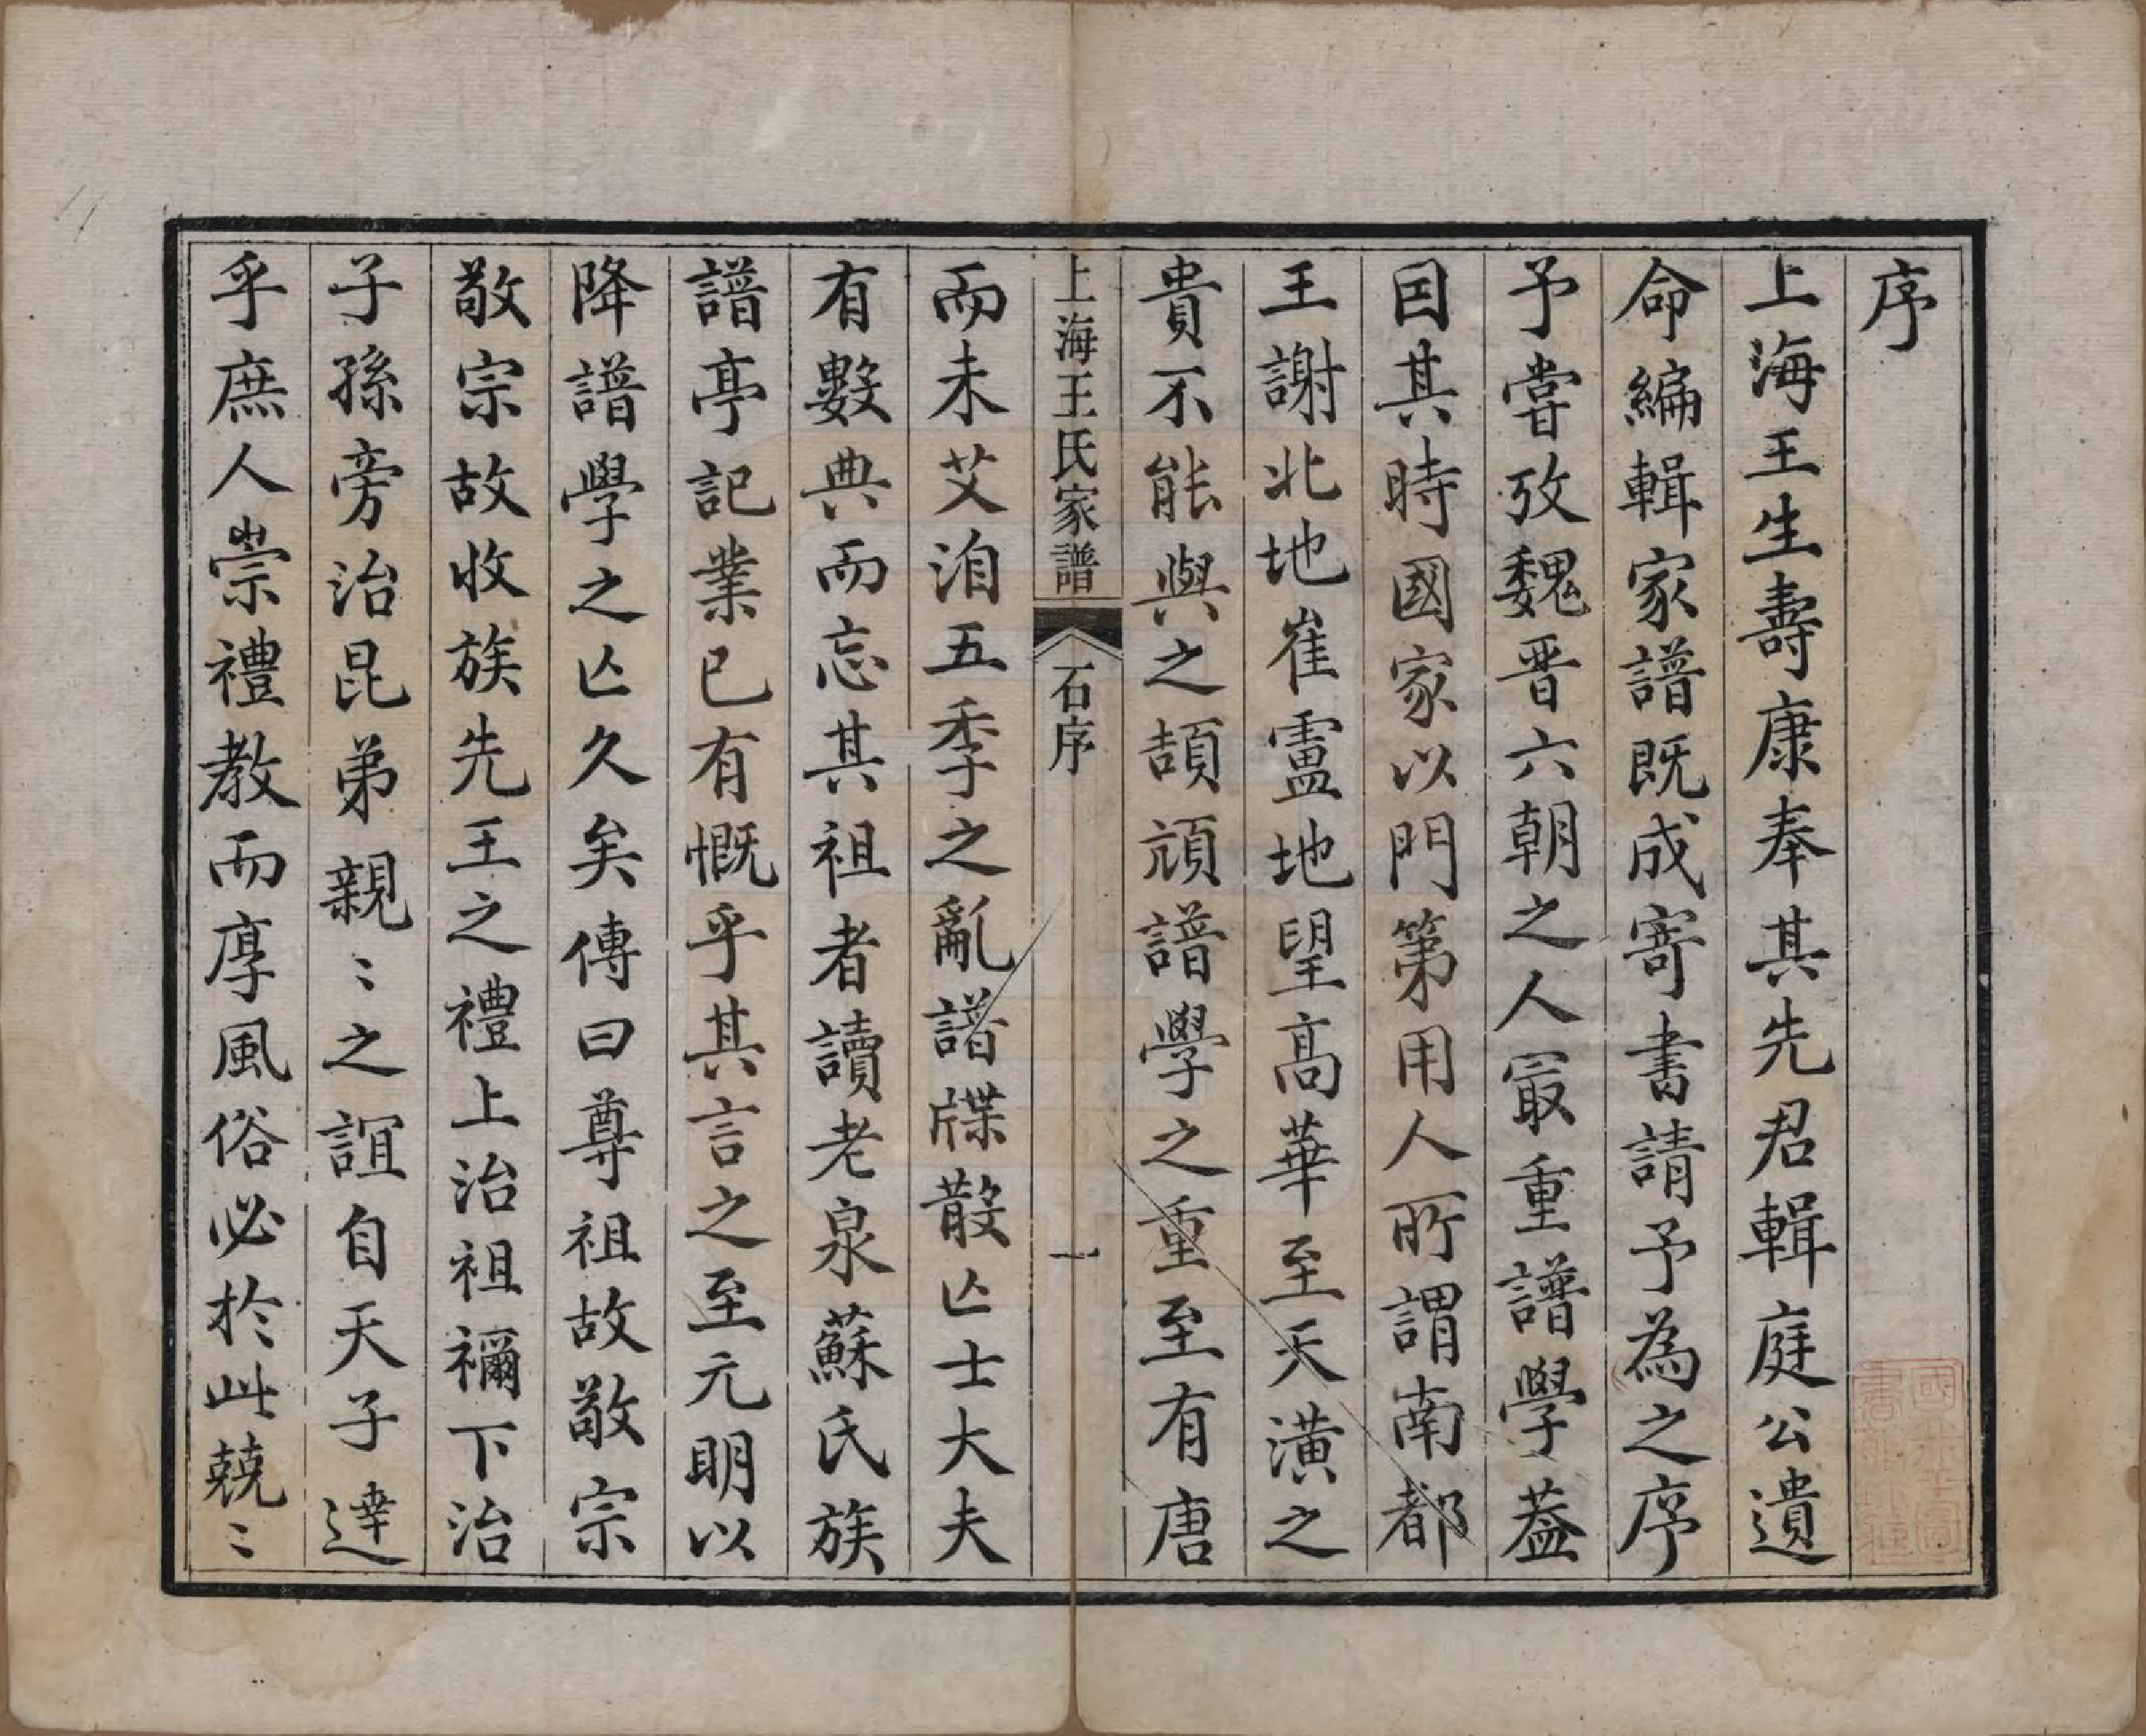 序
上海王生壽康奉其先君輯庭公遺
命編輯家譜既成寄書請予為之序
予嘗攷魏晋六朝之人冣重譜學葢
因其時國家以門第用人所謂南都
王謝北地崔盧地望高華至天潢之
貴不能與之頡頏譜學之重至有唐
上海王氏家譜
石序
一
而未艾洎五季之亂譜牒散亾士大夫
有數典而忘其祖者讀老泉蘇氏族
譜亭記業已有慨乎其言之至元明以
降譜學之亾久矣傳曰尊祖故敬宗
敬宗故收族先王之禮上治祖禰下治
子孫旁治昆弟親〻之誼自天子達
乎庶人崇禮教而厚風俗必於此兢〻